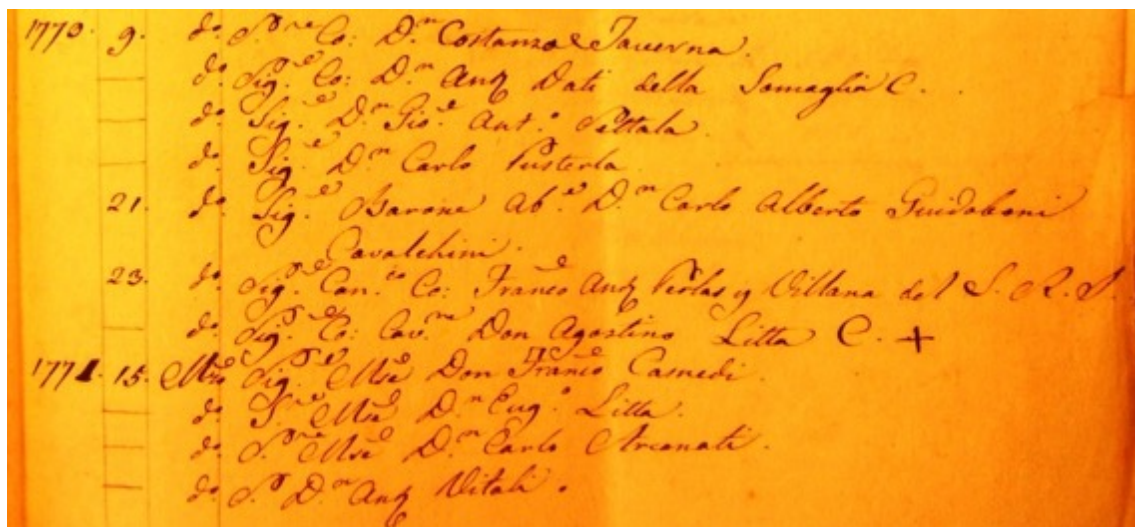 1770. 9. do S.re Co: D.n Costanzo Taverna.
do Sig.e Co: D.n Ant. Dati della Somaglia C.
do Sig.e D.n Gio.e Ant.o Settala.
do Sig.e D.n Carlo Pusterla
21. do Sig.e Barone Ab.e D.n Carlo Alberto Guidoboni
Cavalchini.
23. do Sig.e Can.co Co: Franco Ant. Perlas y Villana del S. R. I.
do Sig.e Co: Cav.re Don Agostino Litta C. +
1771. 15. Mzo Sig.e Mse Don Franco Casnedi.
do S.re Mse D.n Eug.o Litta.
do S.re Mse D.n Carlo Arconati.
do S.r D.n Ant. Vitali.